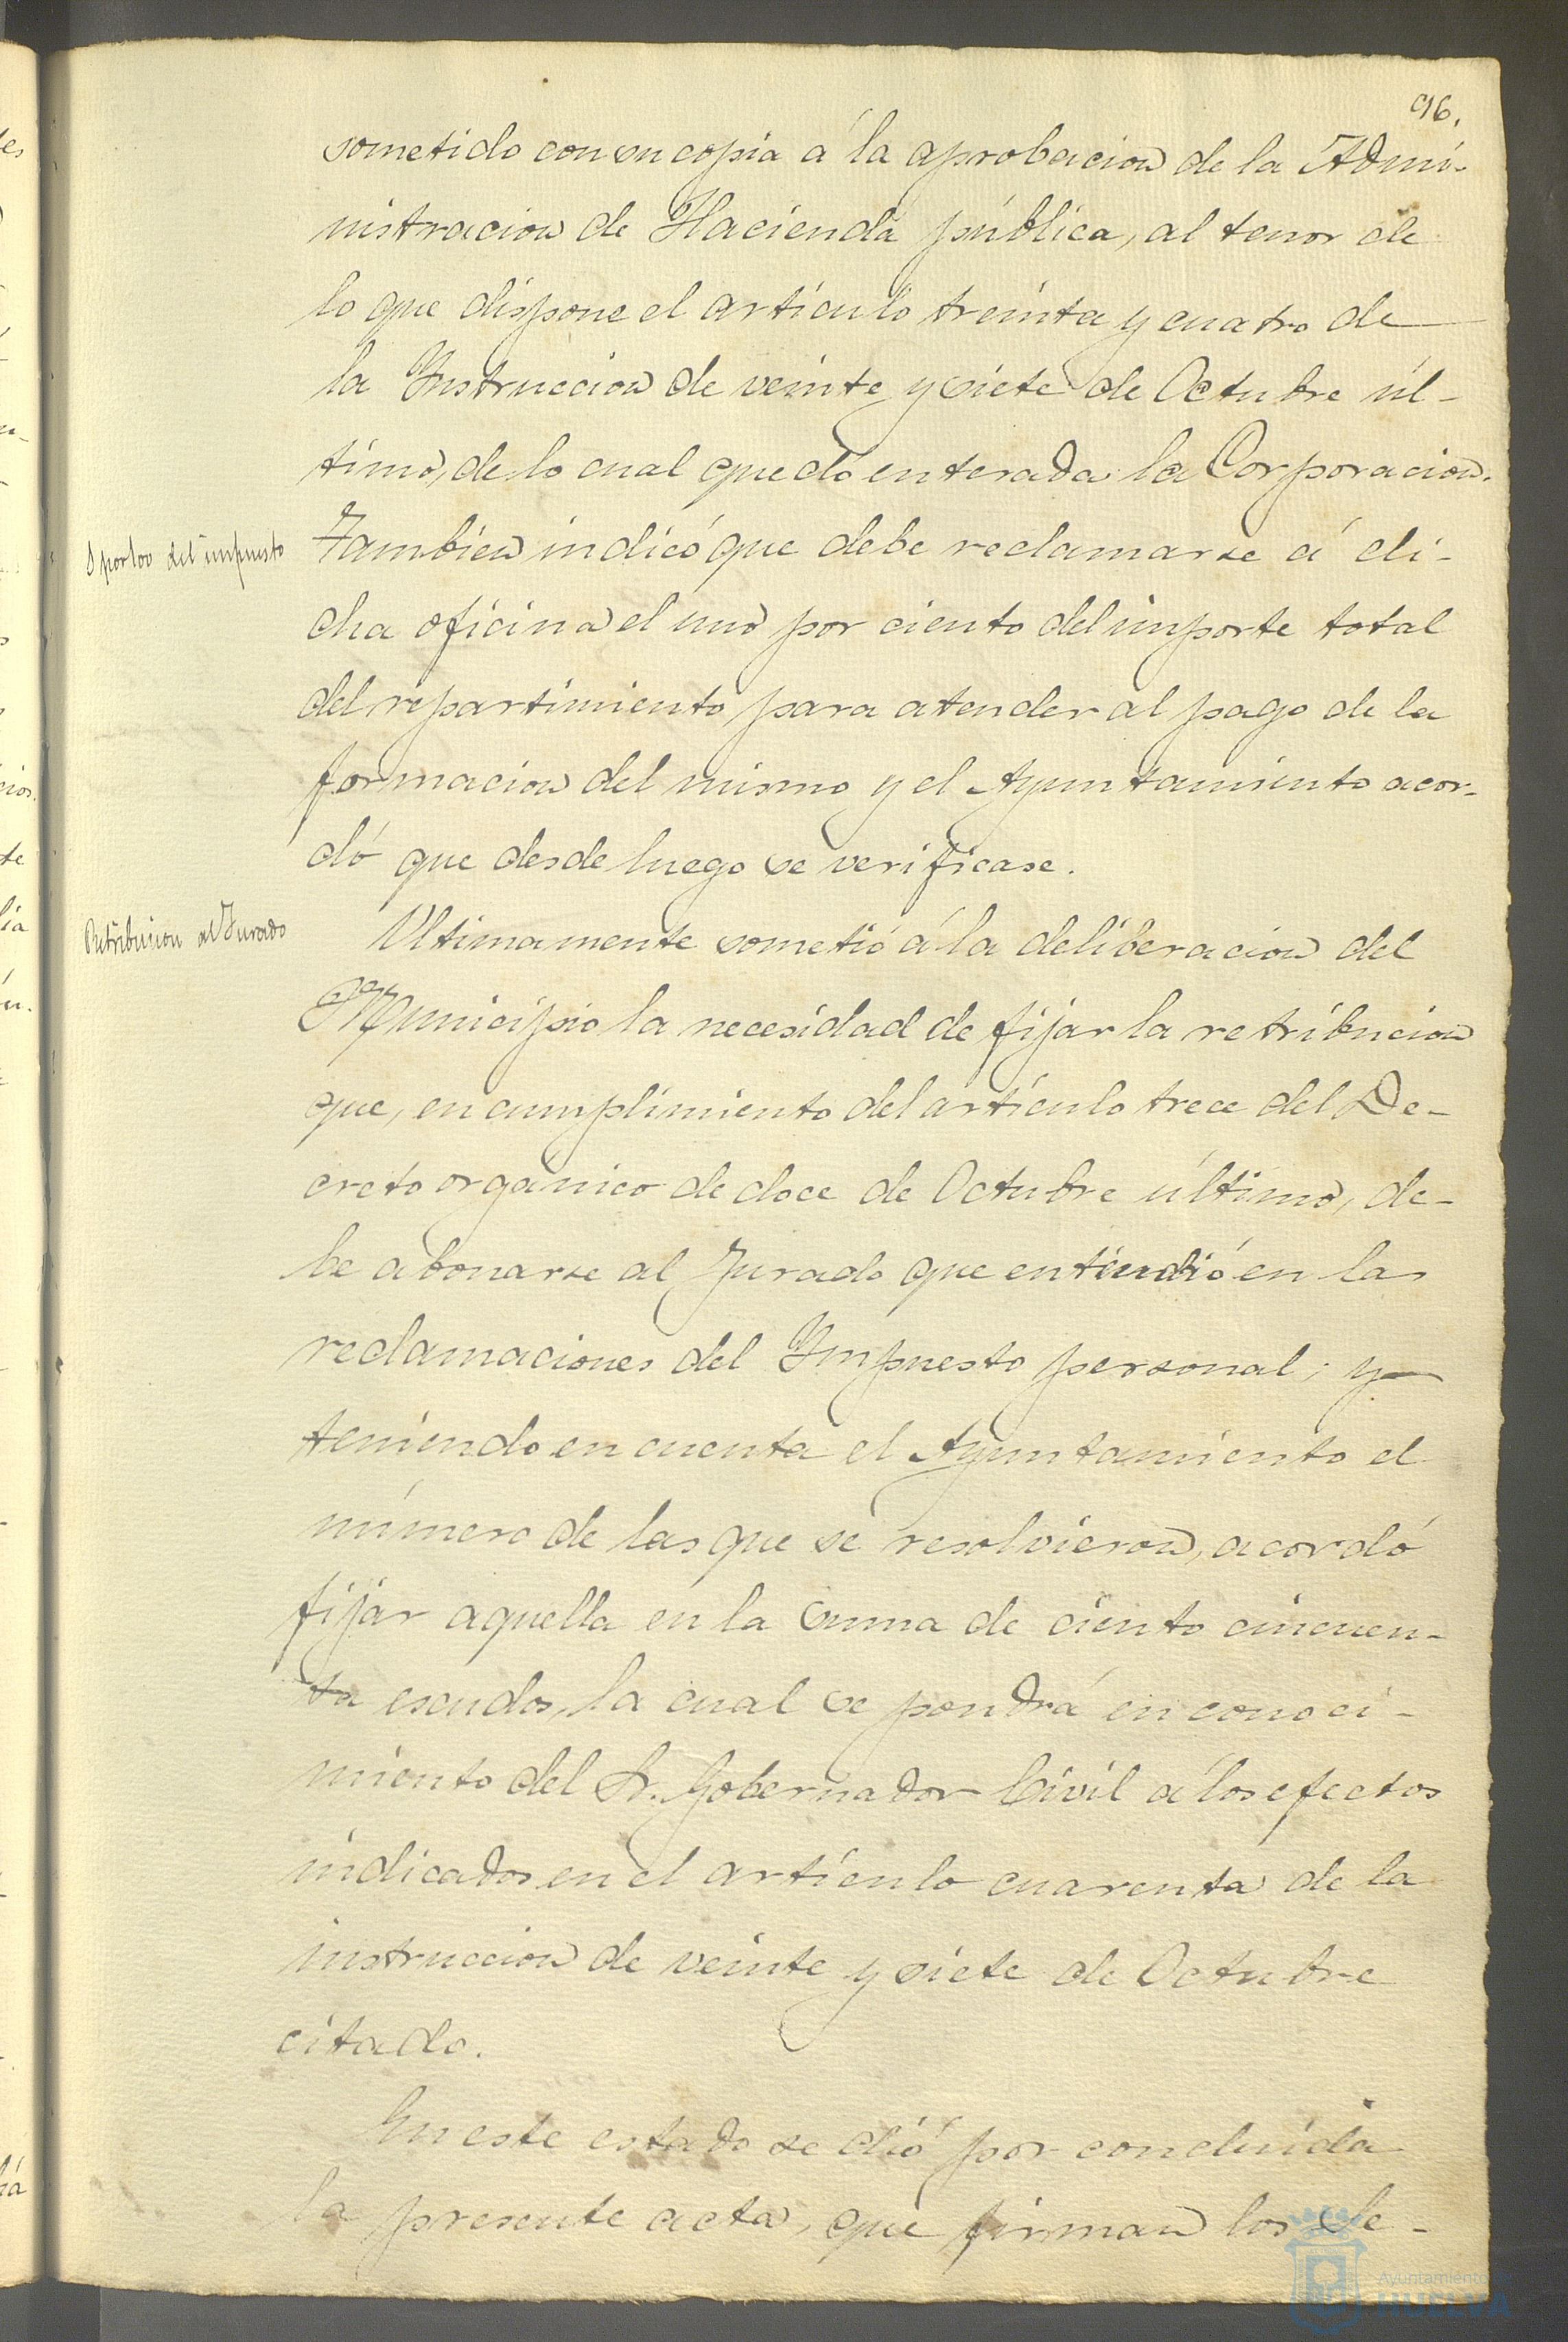 96.
sometido con su copia á la aprobacion de la Admi-
nistracion de Hacienda pública, al tenor de
lo que dispone el artículo treinta y cuatro de
la Instruccion de veinte y siete de Octubre úl-
timo, de lo cual quedó enterada la Corporacion.
del impuesto
Tambien indicó que debe reclamarse á di-
cha oficina el uno por ciento del importe total
del repartimiento para atender al pago de la
formacion del mismo y el Ayuntamiento acor-
dó que desde luego se verificase.
Retribucion al Jurado
Ultimamente sometió á la deliberacion del
Municipio la necesidad de fijar la retribucion
que, en cumplimiento del artículo trece del De-
creto orgánico de doce de Octubre último, de-
be abonarse al Jurado que entendió en las
reclamaciones del Impuesto personal; y
teniendo en cuenta el Ayuntamiento el
número de las que se resolvieron, acordó
fijar aquella en la suma de ciento cincuen-
ta escudos, la cual se pondrá en conoci-
miento del Sr. Gobernador Civil á los efectos
indicados en el artículo cuarenta de la
instruccion de veinte y siete de Octubre
citado.
En este estado se dió por concluida
la presente acta, que firman los Se-
Ayuntamiento de
HUELVA